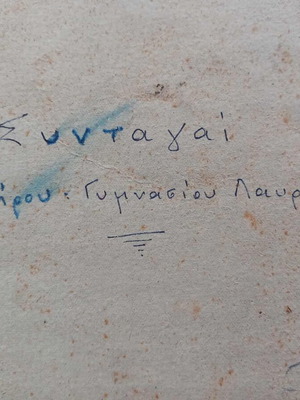 Συνταγαί
ίρου. Γυμνασίου Λαυρ